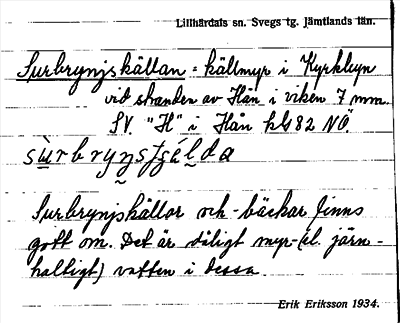 Lillhärdals sn. Svegs tg. Jämtlands län.
Surbrynjskällan = källmyr i Kyrkbyn
vid stranden av Hån i viken 7 mm.
SV. "H" i Hån kbl 82 NÖ.
sùrbrynsʃgälda
Surbrynjskällor och -bäckar finns
gott om. Det är dåligt myr- (el. järn-
haltigt) vatten i dessa.
Erik Eriksson 1934.